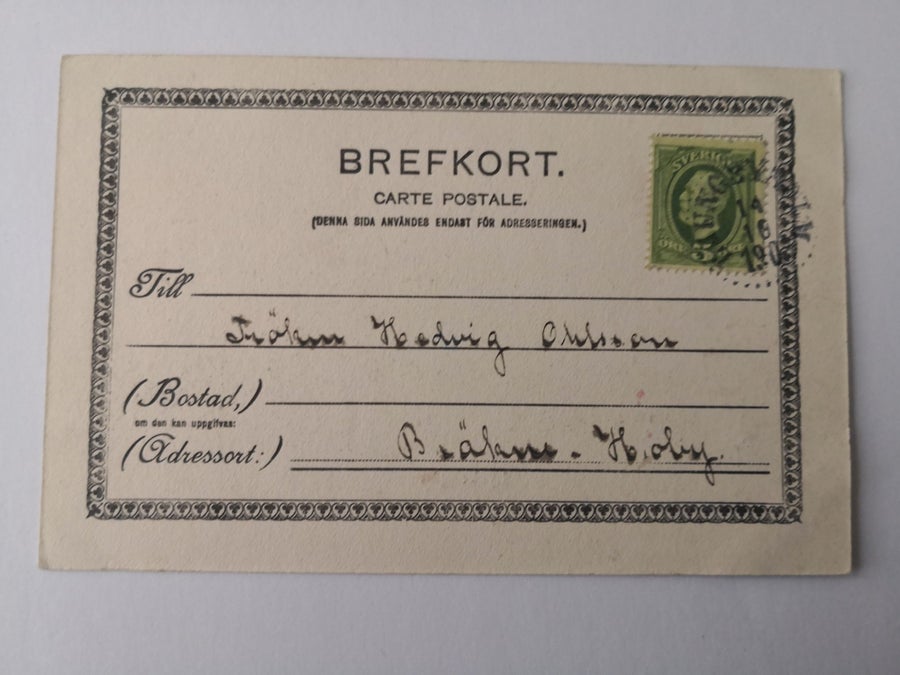 BREFKORT.
CARTE POSTALE.
(DENNA SIDA ANVÄNDES ENDAST FÖR ADRESSERINGEN.)
SVERIGE
ÖRE 5
Till
Fröken Hedvig Ohlsson
(Bostad,)
om den kan uppgifvas:
(Adressort:)
Bräkne-Hoby.